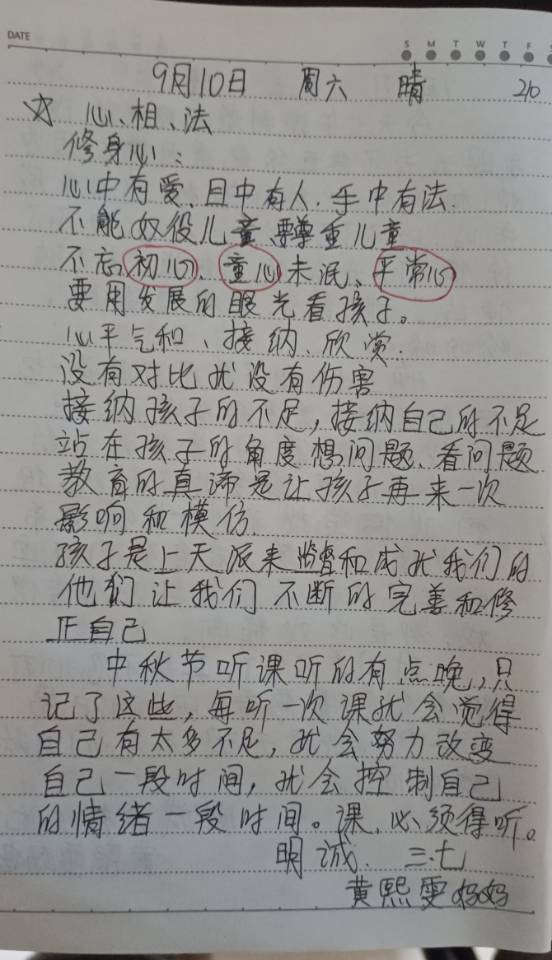 DATE
S M T W T F S
9月10日 周六 晴 210
☆ 心、相、法
修身心:
心中有爱、目中有人、手中有法.
不能奴役儿童、要尊重儿童
不忘初心、童心未泯、平常心
要用发展的眼光看孩子。
心平气和、接纳、欣赏.
没有对比就没有伤害
接纳孩子的不足,接纳自己的不足
站在孩子的角度想问题、看问题
教育的真谛是让孩子再来一次
影响和模仿.
孩子是上天派来监督和成就我们的
他们让我们不断的完善和修
正自己
中秋节听课听的有点晚,只
记了这些,每听一次课就会觉得
自己有太多不足,就会努力改变
自己一段时间,就会控制自己
的情绪一段时间。课,必须得听。
明诚. 三.七
黄熙雯妈妈